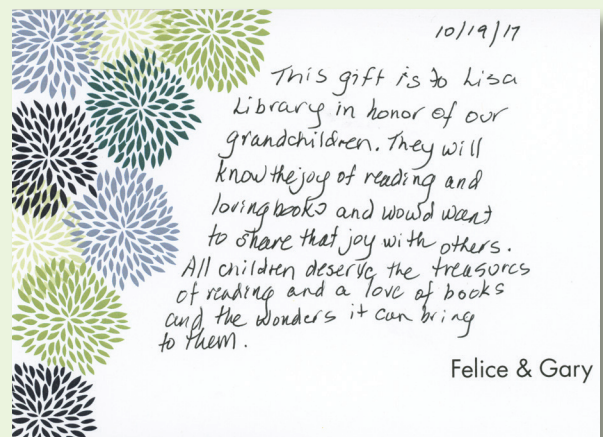 10/19/17
This gift is to Lisa
Library in honor of our
grandchildren. They will
know the joy of reading and
loving books and would want
to share that joy with others.
All children deserve the treasures
of reading and a love of books
and the wonders it can bring
to them.
Felice & Gary